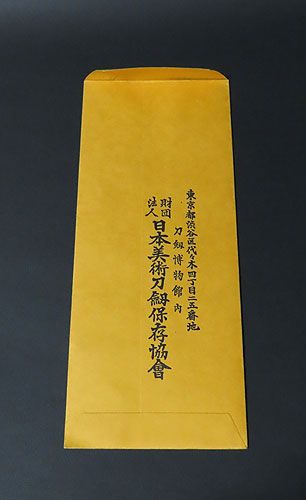 東京都渋谷区代々木四丁目二五番地
刀剱博物館内
財団
法人
日本美術刀剱保存協會